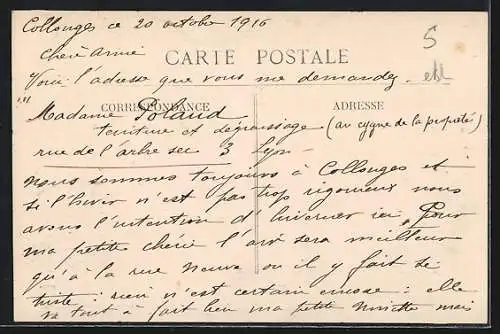 Collonges ce 20 octobre 1916
5
chère Amie
CARTE POSTALE
Voici l'adresse que vous me demandez.
CORRESPONDANCE
ADRESSE
Madame Poland
teinture et dégraissage (au cygne de la propreté)
rue de l'arbre sec 3 Lyon
nous sommes toujours à Collonges et
si l'hiver n'est pas trop rigoureux nous
avons l'intention d'hiverner ici, Pour
ma petite chérie l'air sera meilleur
qu'à la rue Neuve ou il y fait si
triste; rien n'est certain encore: elle
va tout à fait bien ma petite Ninette mais